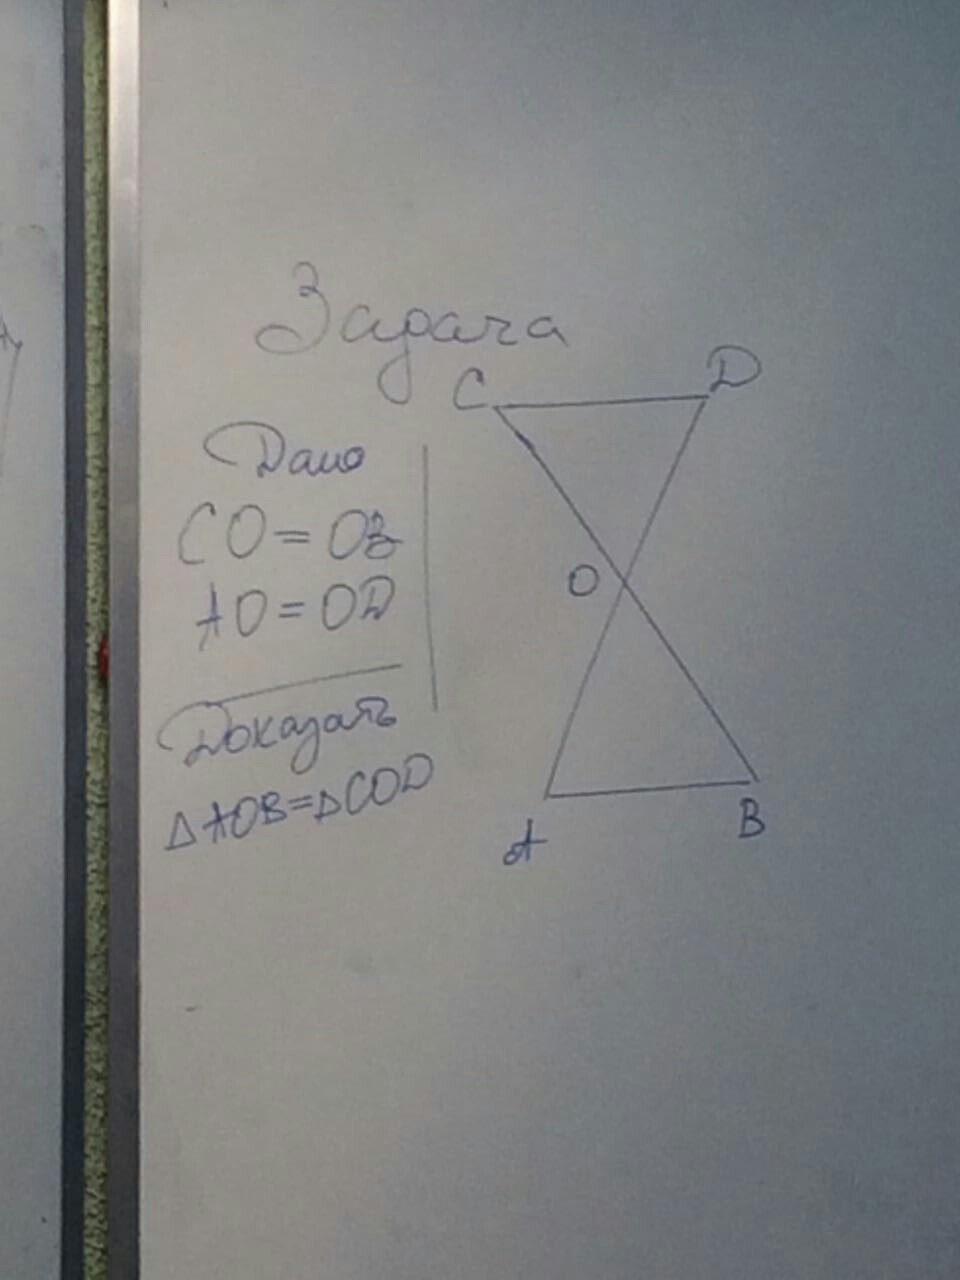 Задача
Дано
CO = OB
AO = OD
Доказать
△AOB=△COD
C
D
O
A
B